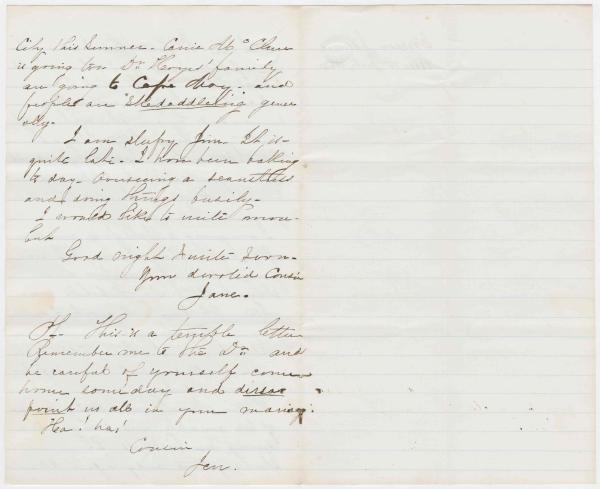 City this Summer - Carrie Mc Clure
is going too Dr Hays' family
are going to Cape May - and
people are "Skedaddleing" gener
ally.
I am sleepy Jim. It is
quite late - I have been baking
to day - overseeing a seamstress
and doing things busily -
I would like to write more -
but
Good night write soon -
Your devoted Cousin
Jane.
PS - This is a terrible letter
Remember me to the Dr and
be careful of yourself come
home some day and disap
point us all in your marriage.
Ha! ha!
Cousin
Jen.